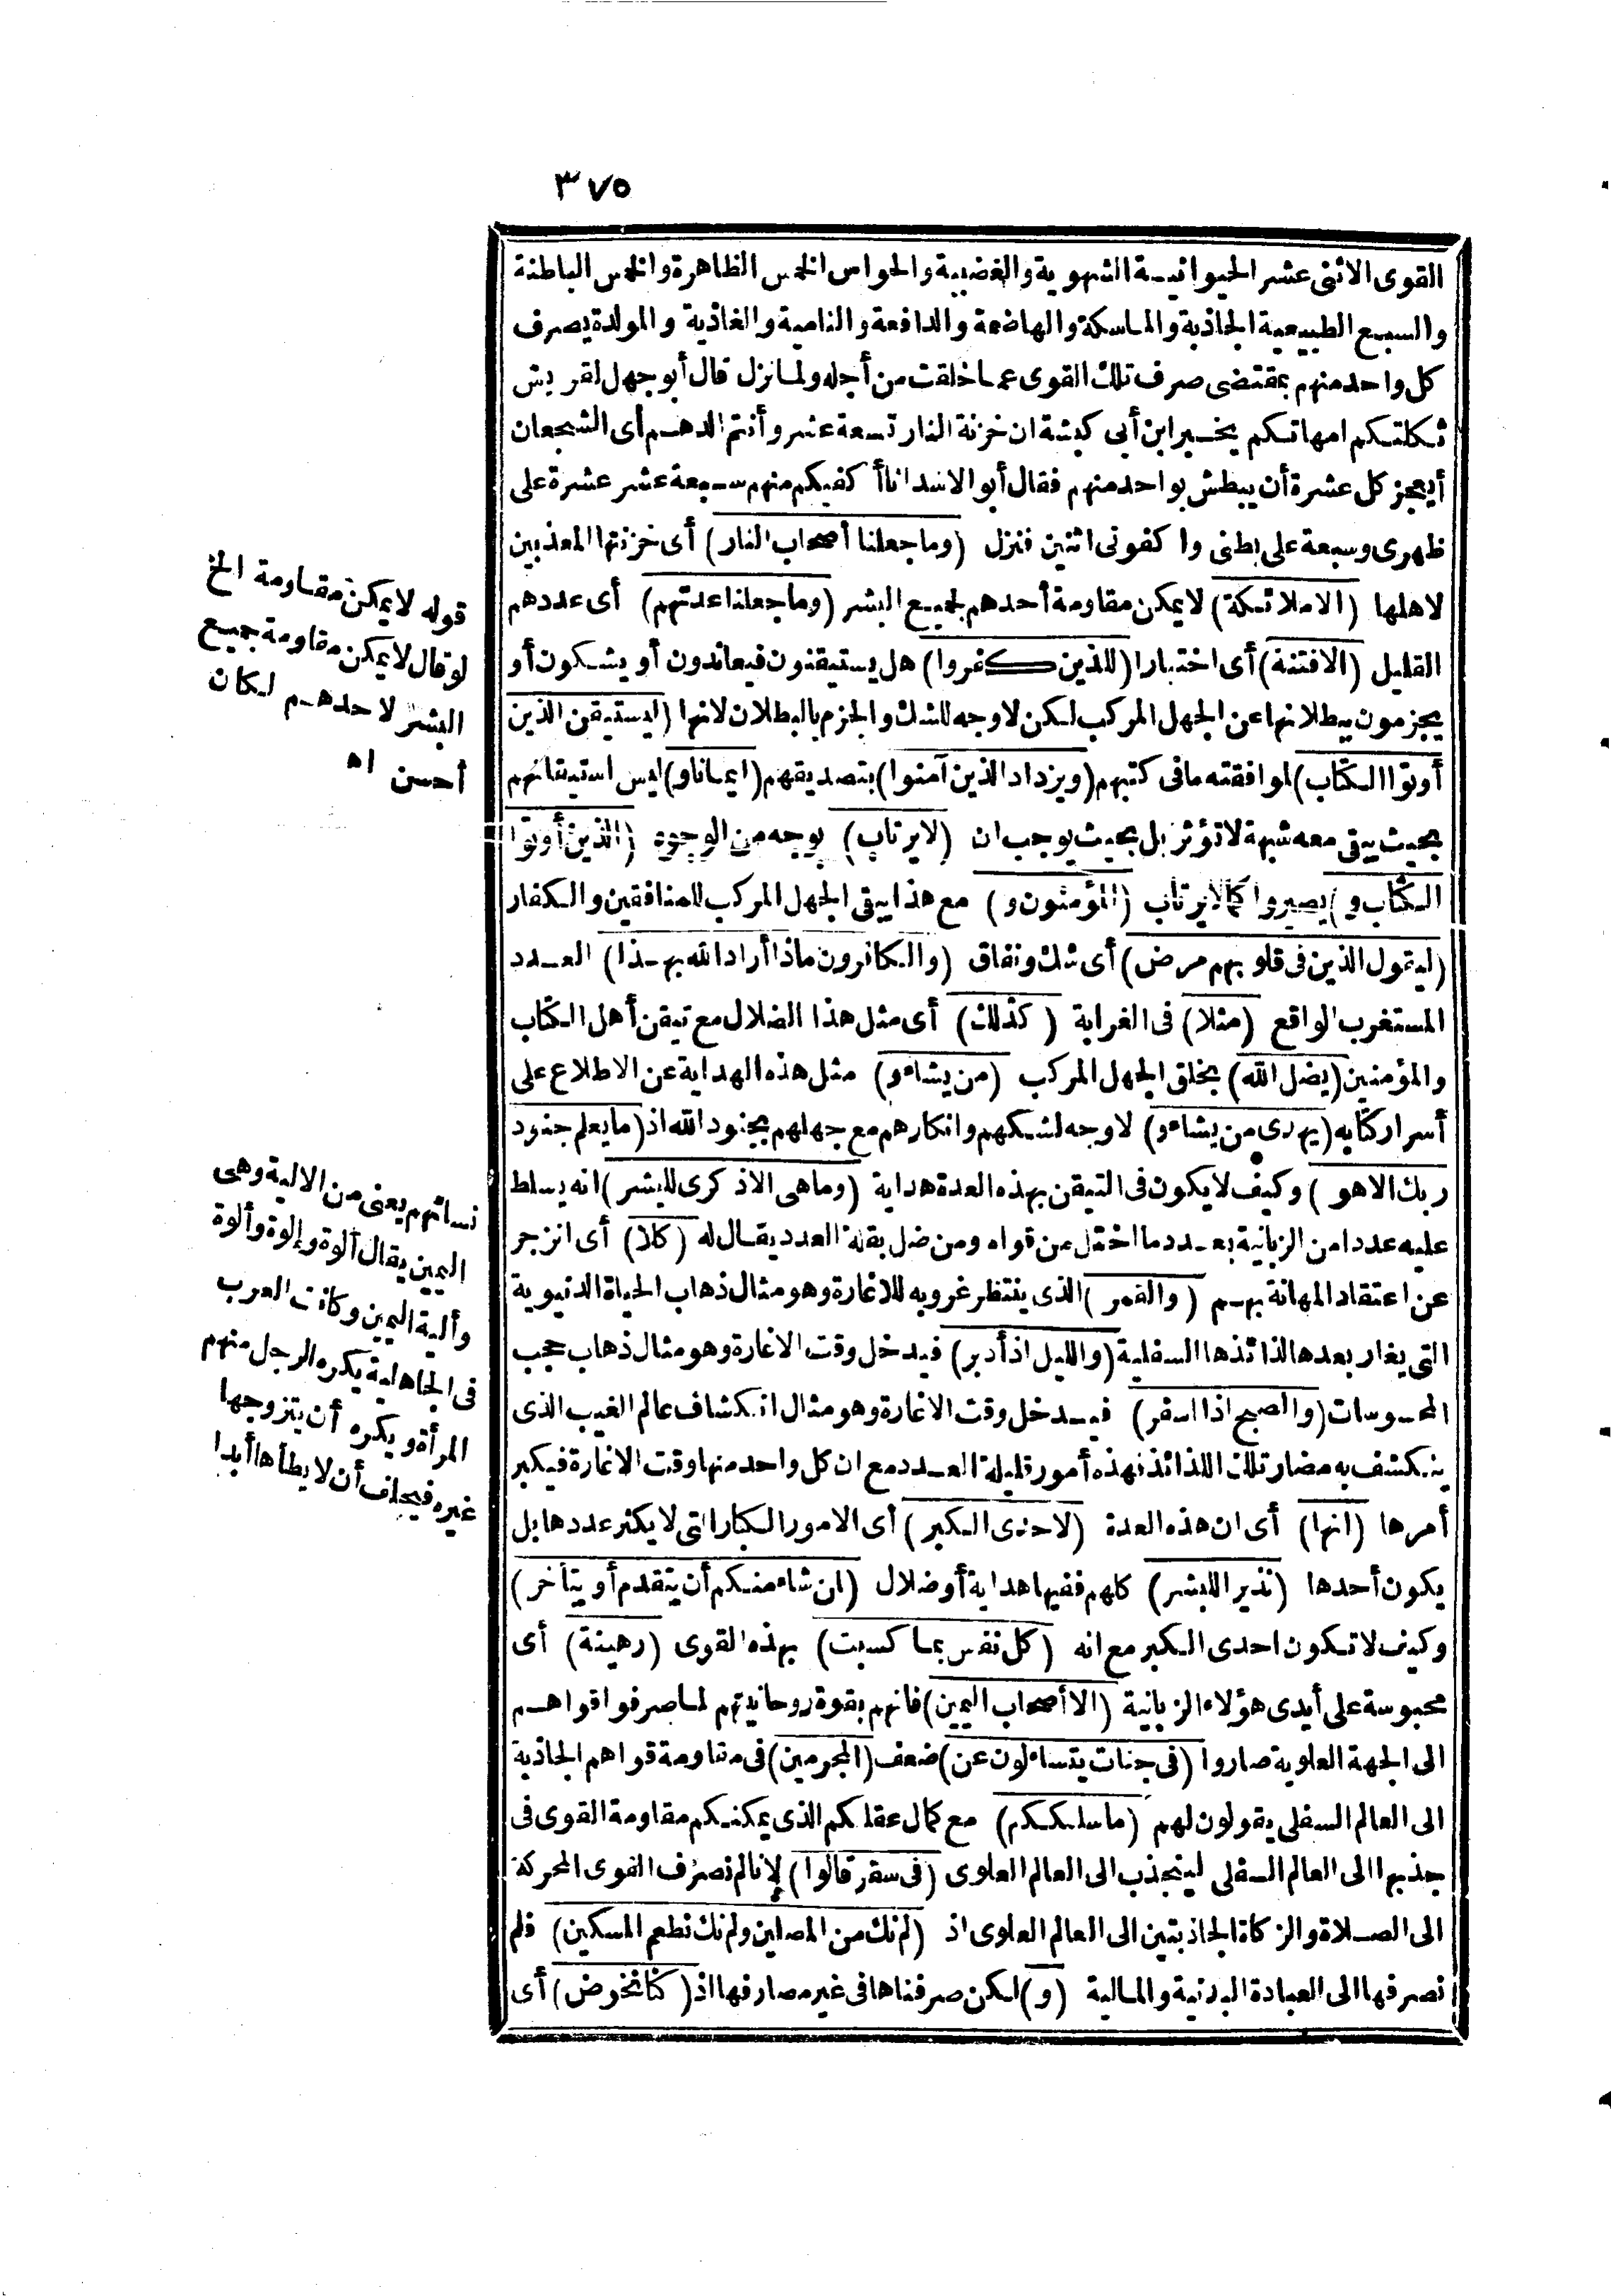 ٣٧٥
القوى الاثنى عشر الحيوانية الشهوية والغضبية والحواس الخمس الظاهرة والخمس الباطنة
والسبع الطبيعية الجاذبة والماسكة والهاضمة والدافعة والنامية والغاذية والمولدة يصرف
كل واحد منهم بمقتضى صرف تلك القوى عما خلقت من أجله ولما نزل قال أبو جهل لقريش
ثكلتكم امهاتكم يخبر ابن أبى كبشة ان خزنة النار تسعة عشر وأنتم الدهم أى الشجعان
أيعجز كل عشرة أن يبطش بواحد منهم فقال أبو الاسد انا أكفيكم منهم سبعة عشر عشرة على
ظهرى وسبعة على بطنى واكفونى اثنين فنزل (وما جعلنا أصحاب النار) أى خزنتها المعذبين
لاهلها (الا ملائكة) لا يمكن مقاومة أحدهم لجميع البشر (وما جعلنا عدتهم) أى عددهم
القليل (الا فتنة) أى اختبارا (للذين كفروا) هل يستيقنون فيعاندون أو يشكون أو
يجزمون ببطلانها عن الجهل المركب لكن لا وجه للشك والجزم بالبطلان لانها (ليستيقن الذين
أوتوا الكتاب) لموافقته ما فى كتبهم (ويزداد الذين آمنوا) بتصديقهم (ايمانا و) ليس استيقانهم
بحيث يبقى معه شبهة لا تؤثر بل بحيث يوجب ان (لا يرتاب) بوجه من الوجوه (الذين أوتوا
الكتاب و) يصيروا كما لا يرتاب (المؤمنون و) مع هذا يبقى الجهل المركب للمنافقين والكفار
(ليقول الذين فى قلوبهم مرض) أى شك ونفاق (والكافرون ماذا أراد الله بهذا) العدد
المستغرب الواقع (مثلا) فى الغرابة (كذلك) أى مثل هذا الضلال مع تيقن أهل الكتاب
والمؤمنين (يضل الله) بخلق الجهل المركب (من يشاء و) مثل هذه الهداية عن الاطلاع على
أسرار كتابه (يهدى من يشاء و) لا وجه لشكهم وانكارهم مع جهلهم بجنود الله اذ (ما يعلم جنود
ربك الا هو) وكيف لا يكون فى التيقن بهذه العدة هداية (وما هى الا ذكرى للبشر) انه يسلط
عليه عددا من الزبانية بعدد ما اختل من قواه ومن ضل بقلة العدد يقال له (كلا) أى انزجر
عن اعتقاد المهانة بهم (والقمر) الذى ينتظر غروبه للاغارة وهو مثال ذهاب الحياة الدنيوية
التى يغار بعدها لذائذها السفلية (والليل اذ أدبر) فيدخل وقت الاغارة وهو مثال ذهاب حجب
المحسوسات (والصبح اذا اسفر) فيدخل وقت الاغارة وهو مثال انكشاف عالم الغيب الذى
ينكشف به مضار تلك اللذائذ فهذه أمور قليلة العدد مع ان كل واحد منها وقت الاغارة فيكبر
أمرها (انها) أى ان هذه العدة (لاحدى الكبر) أى الامور الكبار التى لا يكثر عددها بل
يكون أحدها (نذيرا للبشر) كلهم ففيها هداية أو ضلال (ان شاء منكم أن يتقدم أو يتأخر)
وكيف لا تكون احدى الكبر مع انه (كل نفس بما كسبت) بهذه القوى (رهينة) أى
محبوسة على أيدى هؤلاء الزبانية (الا أصحاب اليمين) فانهم بقوة روحانيتهم لما صرفوا قواهم
الى الجهة العلوية صاروا (فى جنات يتساءلون عن) ضعف (المجرمين) فى مقاومة قواهم الجاذبة
الى العالم السفلى يقولون لهم (ما سلككم) مع كمال عقلكم الذى يمكنكم مقاومة القوى فى
جذبها الى العالم السفلى لينجذب الى العالم العلوى (فى سقر قالوا) لانا لم نصرف القوى المحركة
الى الصلاة والزكاة الجاذبتين الى العالم العلوى اذ (لم نك من المصلين ولم نك نطعم المسكين) فلم
نصرفها الى العبادة البدنية والمالية (و) لكن صرفناها فى غير مصارفها اذ (كنا نخوض) أى
قوله لا يمكن مقاومة الخ
لو قال لا يمكن مقاومة جميع
البشر لاحدهم لكان
أحسن اه
نسائهم يعنى من الالية وهى
اليمين يقال ألوة وإلوة وألوة
وألية اليمين وكانت العرب
فى الجاهلية يكره الرجل منهم
المرأة ويكره أن يتزوجها
غيره فيحلف أن لا يطأها أبدا